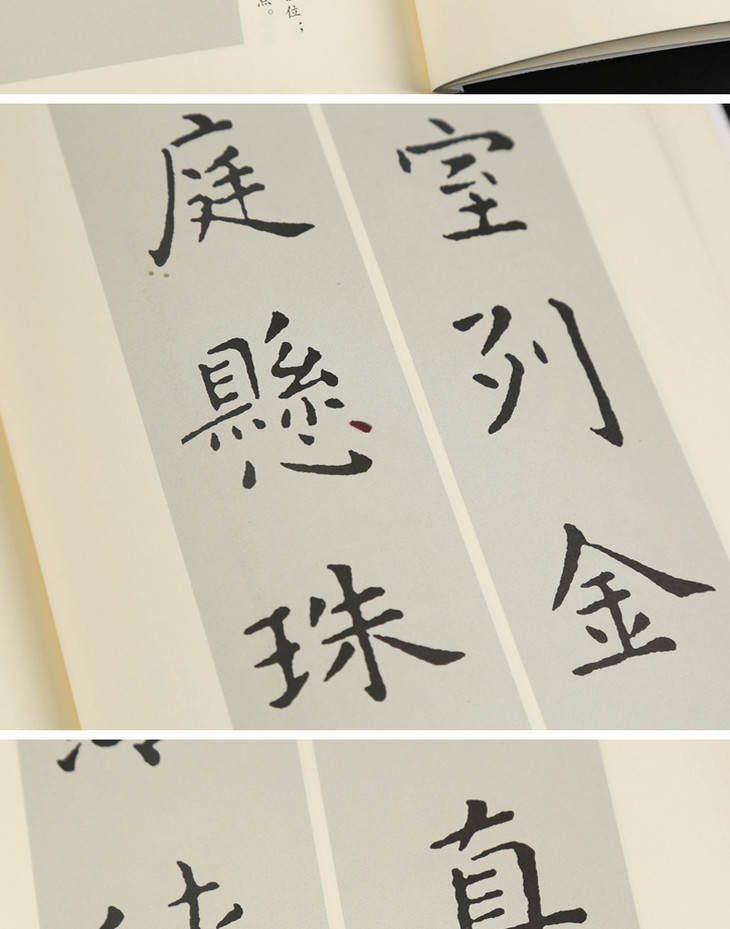 位；
点。
室列金
庭懸珠
真